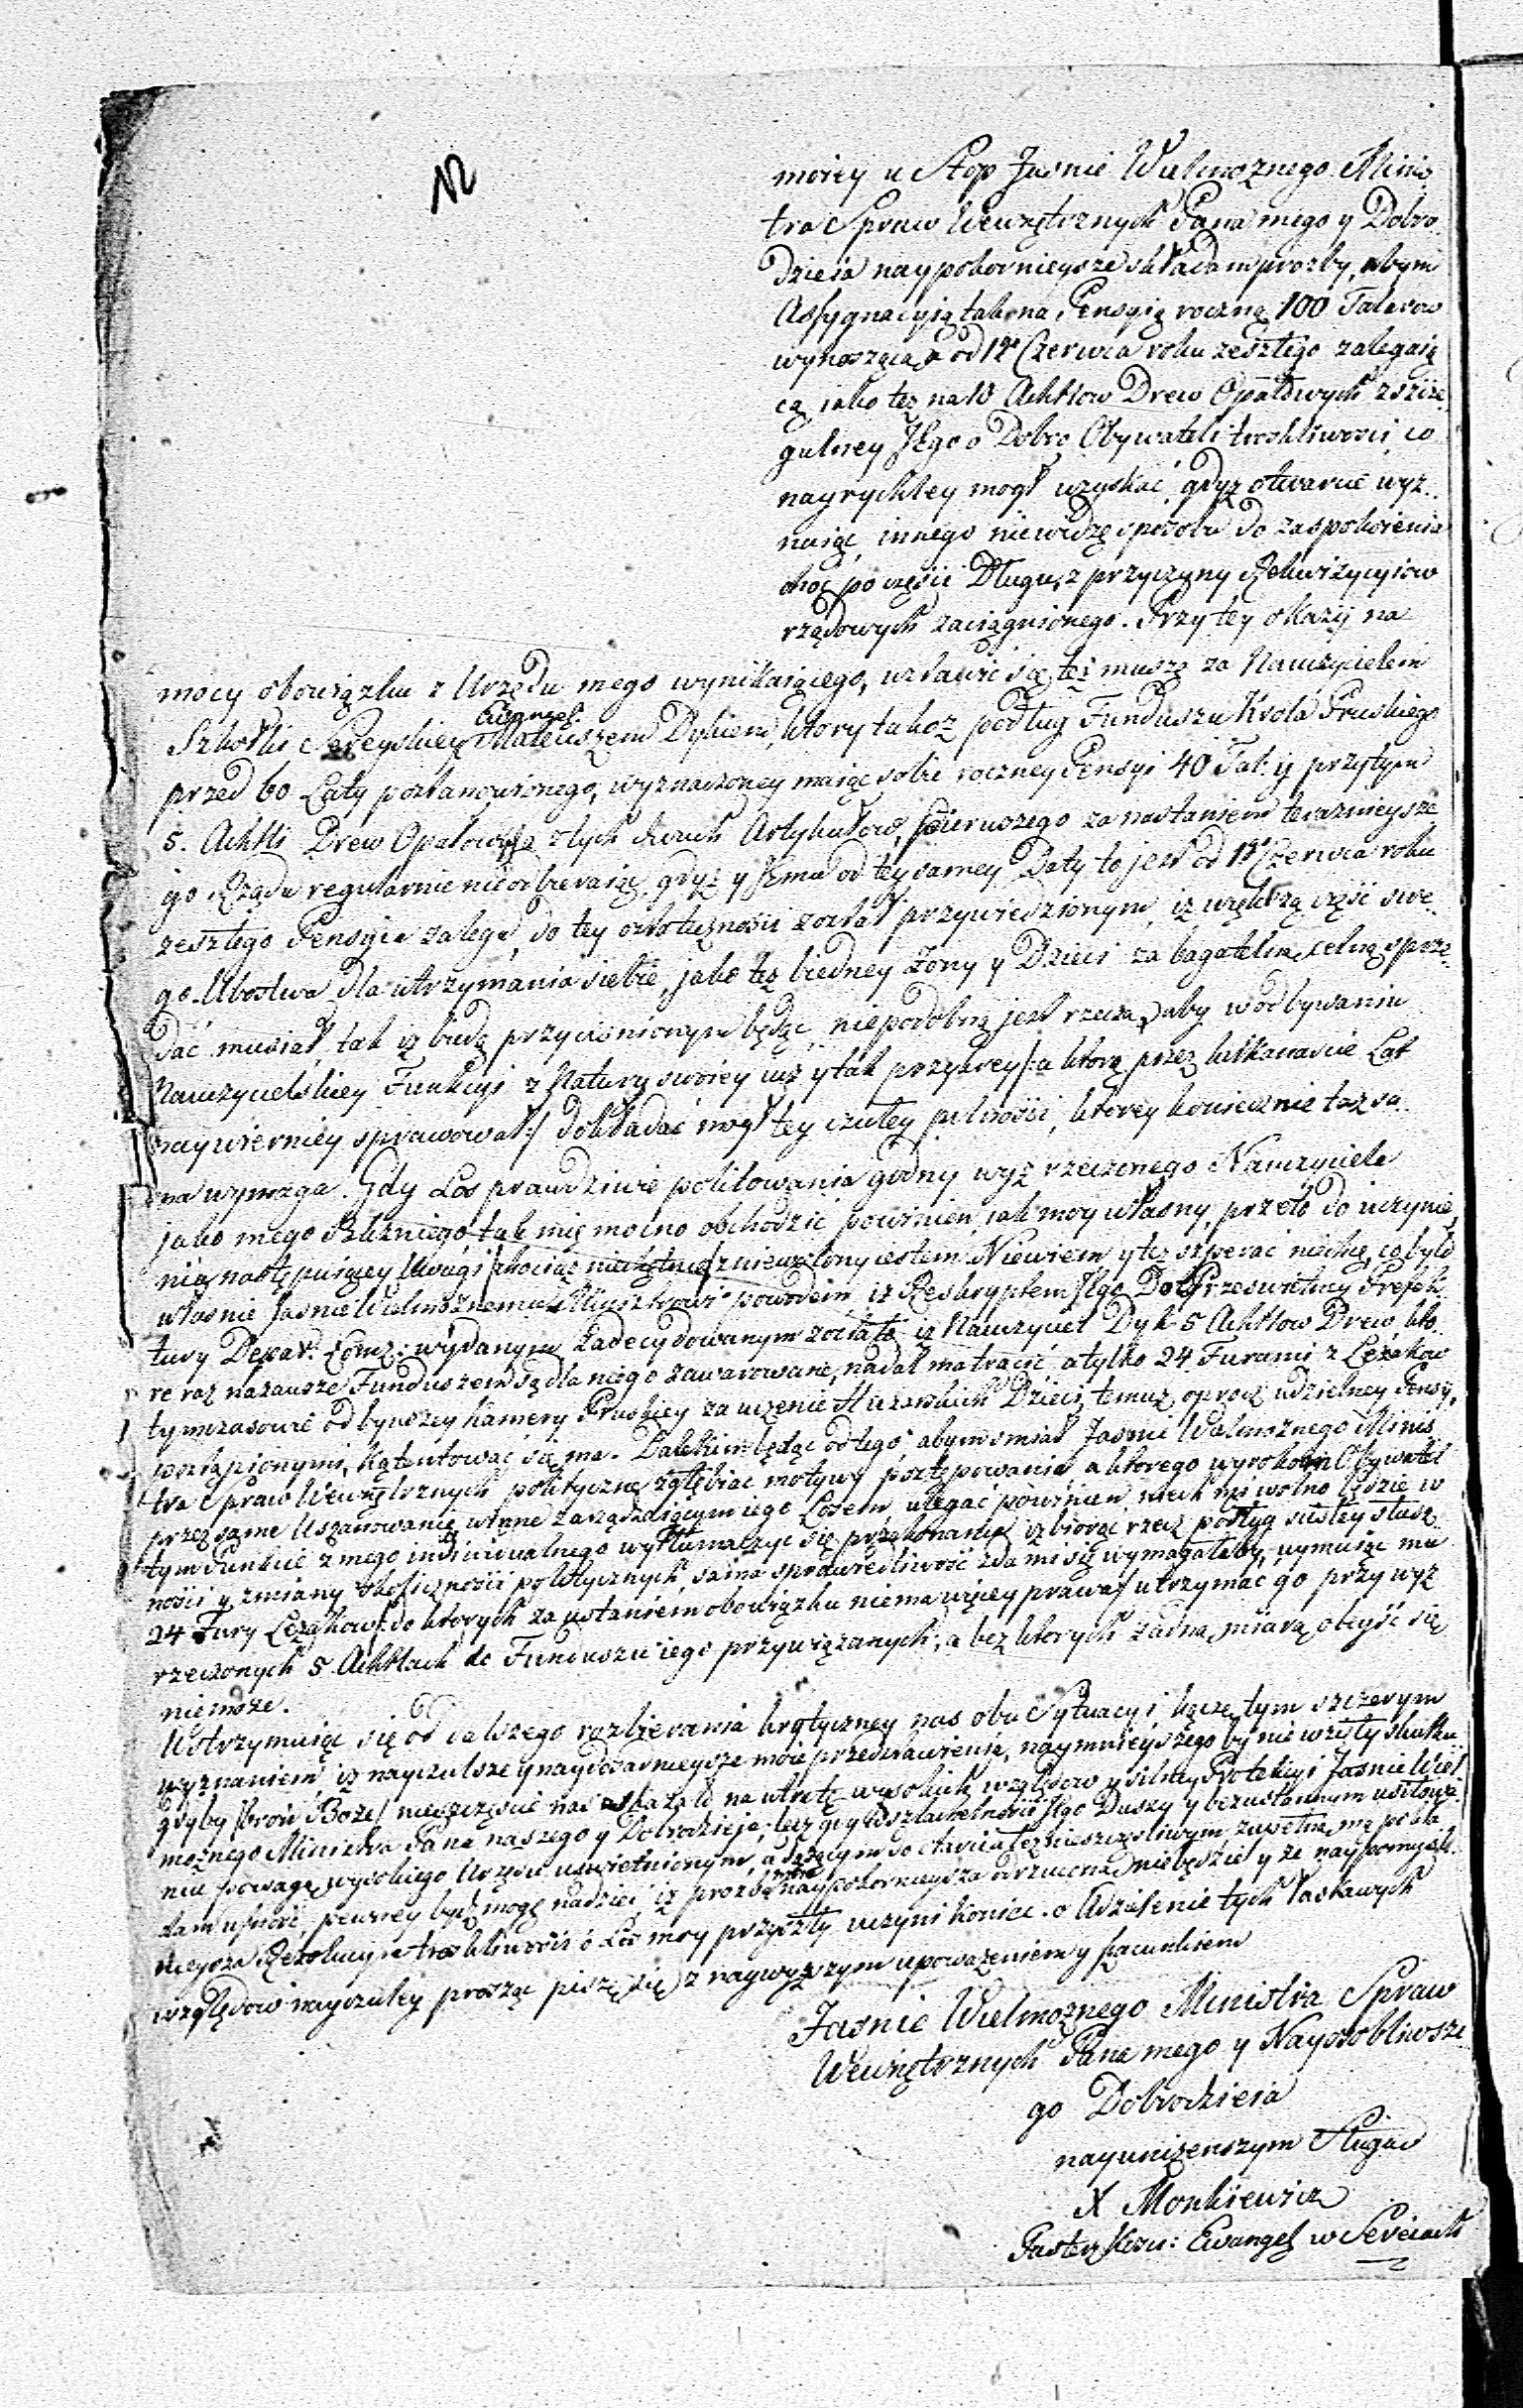 moiey u Stop Jasnie Wielmoznego Minis
tra Spraw Wewnętrznych Pana mego y Dobro
dzieia naypokornieysze składam prozby, abym
Assygnacyią tak na Pensyią roczną 100 Talerow
wynoszącą a od 1go Czerwca roku zeszłego zalegaią
cą, jako też na 10 Achtlow Drew Opałowych z szcze
gulney JEgo o Dobro Obywateli troskliwosci, co
nayrychley mogł uzyskać, gdyż otwarcie wyz
naiąc, innego niewidzę sposobu do zaspokoienia
choć po części Długu, z przyczyny Rekwizycyiow
rządowych zaciągnionego. Przy tey okazyi na
mocy obowiązku z Urzędu mego wynikaiącego, wstawić się też muszę za Nauczycielem
Szkołki Sereyskiey Ewangel. Mateuszem Dykiem, ktory takoż podług Funduszu Krola Pruskiego
przed 60 Laty postanowionego, wyznaczoney maiąc sobie roczney Pensyi 40 Tal: y przytym
5. Achtli Drew Opałowych z tych dwuch Artykułow, pierwszego za nastaniem teraznieysze
go Rządu regularnie nieodbieraiąc, gdyż y Jemu od tey samey Daty to jest od 1go Czerwca roku
zeszłego Pensyia zalega, do tey ostateczności został przywiedzionym, iż większą część swe
go Ubostwa dla utrzymania siebie, jako też biedney żony y Dzieci za bagatelną cenę sprze
dać musiał, tak iż biedą przyciśnionym będąc, niepodobną jest rzeczą, aby w odbywaniu
Nauczycielskiey Funkcyi z Natury swoiey już y tak przykrey /: a ktorą przez kilkanaście Lat
naywierniey sprawował :/ dokładać mogł tey czułey pilności, ktorey koniecznie taż sa
ma wymaga. Gdy Los prawdziwie politowania godny wyż rzeczonego Nauczyciela
jako mego Bliźniego, tak mię mocno obchodzić powinien, jak moy własny, przeto do uczynie
nia następuiącey Uwagi /chociaż niechętnie/ zniewolony iestem. Niewiem, y też szperać niechcę, co było
własnie JasnieWielmożnemu Ministrowi powodem, iż Reskryptem JEgo Do Prześwietney Prefek
tury Depart: Łomż: wydanym zadecydowanym zostało, iż Nauczyciel Dyk 5 Achtlow Drew, kto
re raz nazawsze Funduszem są dla niego zawarowane, nadal ma tracić, a tylko 24 Furami z Leżakow
tymczasowie od bywszey Kamery Pruskiey za uczenie Dzieci, temuż oprocz udzielney Pensyi,
postąpionymi, kątentować się ma. Dalekim będąc od tego, abym śmiał Jasnie Wielmożnego Minis
tra Spraw Wewnętrznych polityczne zgłębiać motywy postępowania, a ktorego wyrokom Obywatel
przez same Uszanowanie winne zarządzaiącym iego Losem, ulegać powinien, niech mi wolno będzie w
tym Punkcie z mego indiwidualnego wytłumaczyć się przekonania, iż biorąc rzecz podług scisłey słusz
nosci y zmiany okoliczności politycznych, sama sprawiedliwość zda mi się wymagałaby, uymuiąc mu
24 Fury Leżakow /:do ktorych za ustaniem obowiązku niema więcey prawa:/ utrzymać go przy wyż
rzeczonych 5 Achtlach do Funduszu iego przywiązanych, a bez ktorych żadną miarą obeyść się
niemoże.
Wstrzymuiąc się od dalszego rozbierania krytyczney nas obu Sytuacyi, kączę tym szczerym
wyznaniem, iż nayczulsze y naydosadnieysze moie przedstawienia, naymnieyszego by nie wzięły skutku
gdyby /broń Boże/ nieszczęście nas wskazało na utratę wysokich względow y silney Protekcyi JasnieWiel
możnego Ministra Pana naszego y Dobrodzieja; lecz gdy w szlachetności JEgo Duszy y bezustannym usiłowa
niu powagą wysokiego Urzędu uświetnionym, a dążącym do otarcia łez nieszczęśliwym, zupełną mą pokła
dam ufność, pewney bydź mogę nadziei, iż prozba ma naypokornieysza odrzuconą niebędzie y że naypomyśl
nieysza Rezolucyia troskliwości o Los moy przyszły uczyni koniec. o Udzielenie tych łaskawych
względow nayczuley prosząc piszę się z naywyższym upoważeniem y szacunkiem
Jasnie Wielmożnego Ministra Spraw
Wewnętrznych Pana mego y Nayosobliwsze
go Dobrodzieia
nayuniżenszym Sługą
X Monkiewicz
Pasterz Kosc: Ewangel w Sereiach